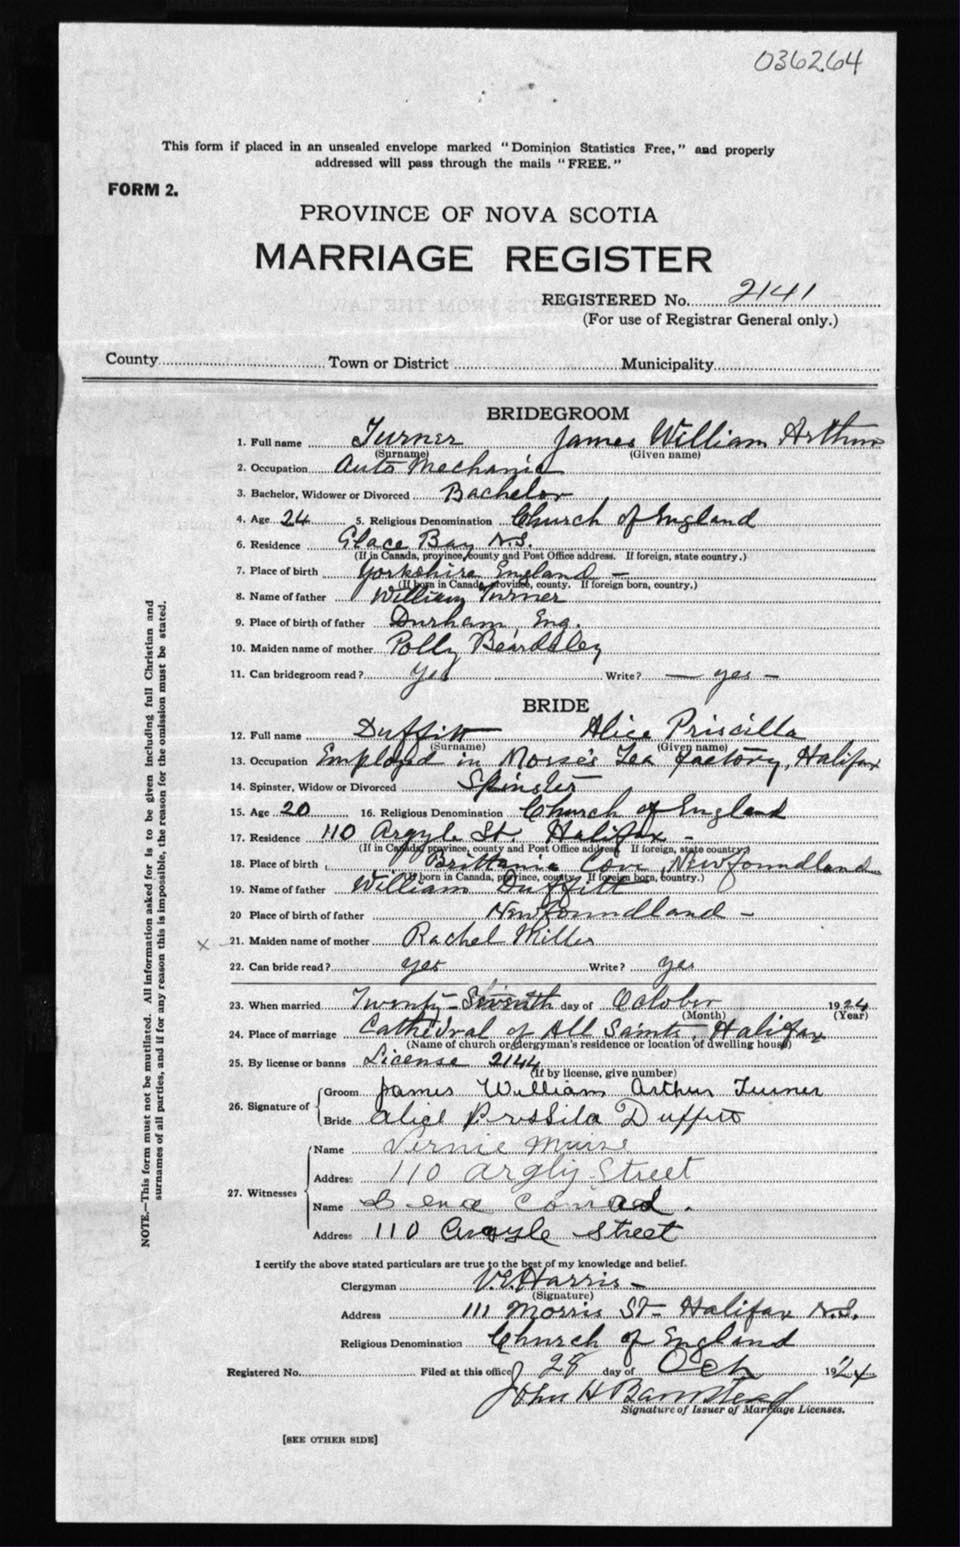 036264
This form if placed in an unsealed envelope marked "Dominion Statistics Free," and properly
addressed will pass through the mails "FREE."
FORM 2.
PROVINCE OF NOVA SCOTIA
MARRIAGE REGISTER
REGISTERED No. 2141
(For use of Registrar General only.)
County Town or District Municipality
BRIDEGROOM
1. Full name Turner James William Arthur
(Surname) (Given name)
2. Occupation Auto Mechanic
3. Bachelor, Widower or Divorced Bachelor
4. Age 24 5. Religious Denomination Church of England
6. Residence Glace Bay N.S.
(If in Canada, province, county and Post Office address. If foreign, state country.)
7. Place of birth Yorkshire England –
(If born in Canada, province, county. If foreign born, country.)
8. Name of father William Turner
9. Place of birth of father Durham, Eng.
10. Maiden name of mother Polly Beardsley
11. Can bridegroom read? Yes Write? — yes —
BRIDE
12. Full name Duffitt Alice Priscilla
(Surname) (Given name)
13. Occupation Employed in Morse's Tea factory, Halifax
14. Spinster, Widow or Divorced Spinster
15. Age 20 16. Religious Denomination Church of England
17. Residence 110 Argyle St. Halifax –
(If in Canada, province, county and Post Office address. If foreign, state country.)
18. Place of birth Brittania Cove, Newfoundland
(If born in Canada, province, county. If foreign born, country.)
19. Name of father William Duffitt
20 Place of birth of father Newfoundland –
x 21. Maiden name of mother Rachel
22. Can bride read? yes Write? yes
23. When married Twenty-Seventh day of October 1924
(Month) (Year)
24. Place of marriage Cathedral of All Saints, Halifax
(Name of church or clergyman's residence or location of dwelling house)
25. By license or banns License 2144
(If by license, give number)
26. Signature of
Groom James William Arthur Turner
Bride Alice Prissila Duffitt
27. Witnesses
Name
Address 110 Street
Name Conrad.
Address 110 Argyle Street
I certify the above stated particulars are true to the best of my knowledge and belief.
Clergyman V.E. Harris –
(Signature)
Address 111 Morris St – Halifax N.S.
Religious Denomination Church of England
Registered No. Filed at this office 28 day of Oct 1924
John H Barnstead
Signature of Issuer of Marriage Licenses.
[SEE OTHER SIDE]
NOTE.—This form must not be mutilated. All information asked for is to be given including full Christian and
surnames of all parties, and if for any reason this is impossible, the reason for the omission must be stated.